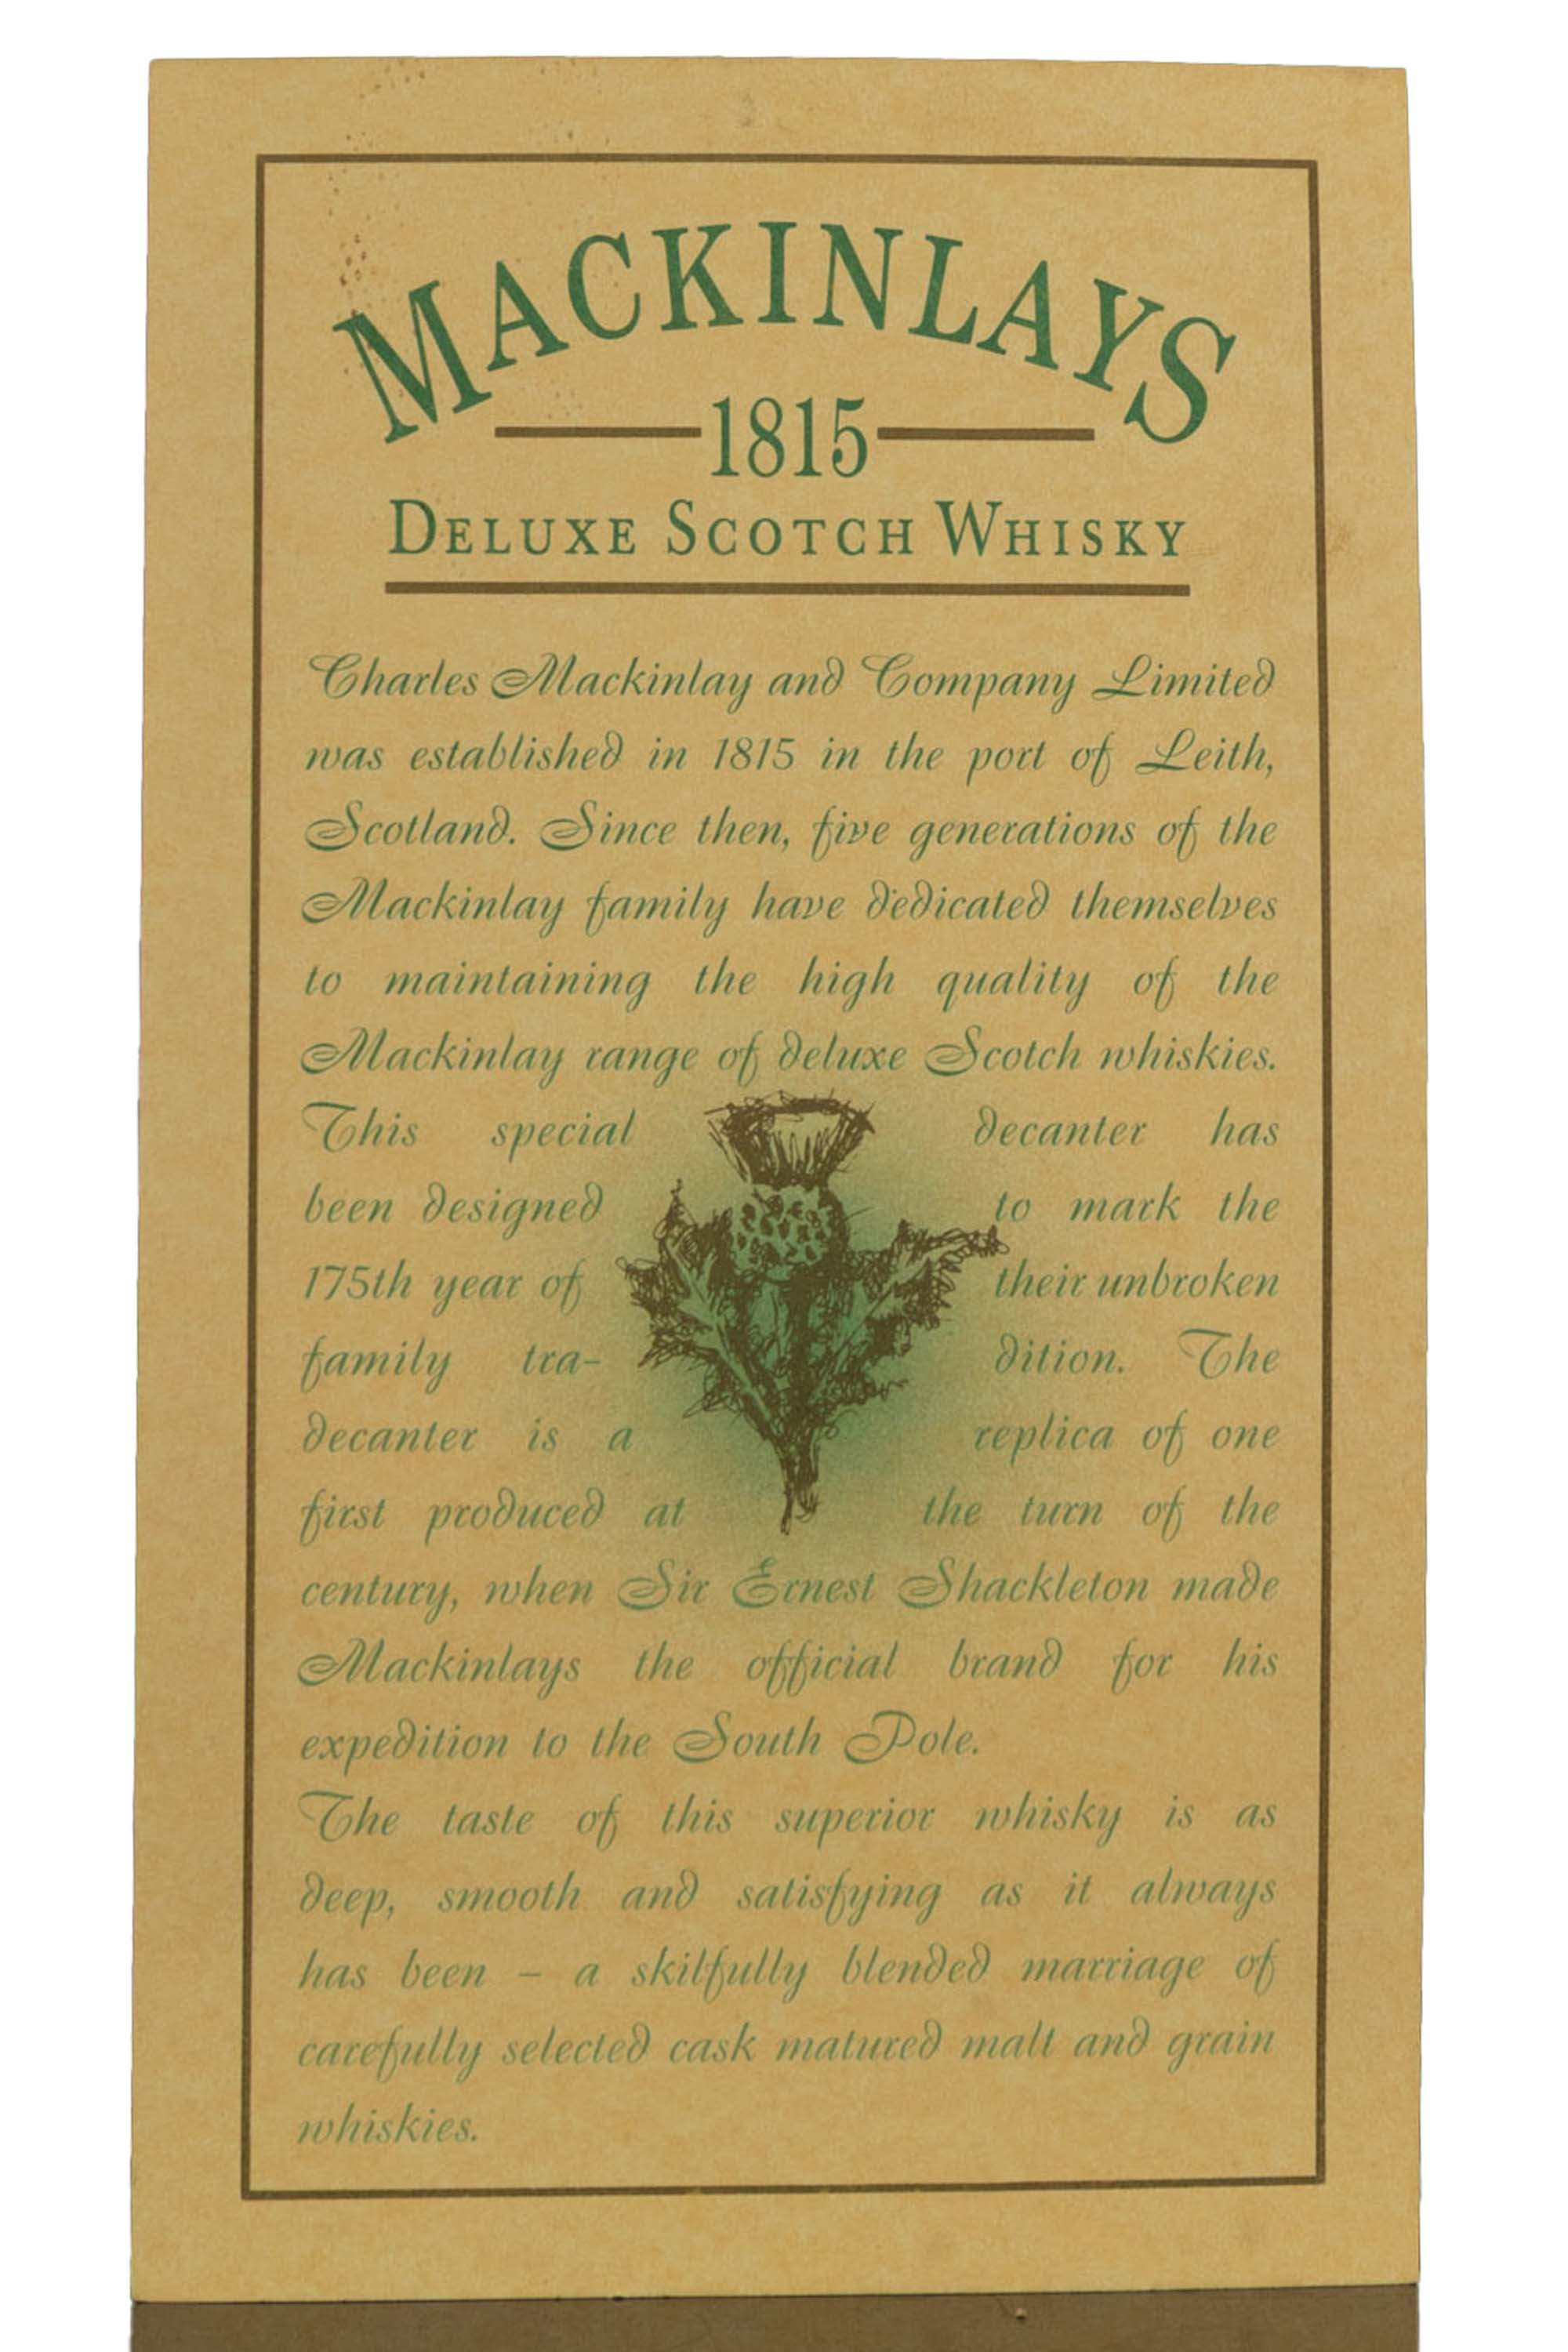 MACKINLAYS
1815
DELUXE SCOTCH WHISKY
Charles Mackinlay and Company Limited
was established in 1815 in the port of Leith,
Scotland. Since then, five generations of the
Mackinlay family have dedicated themselves
to maintaining the high quality of the
Mackinlay range of deluxe Scotch whiskies.
This special decanter has
been designed to mark the
175th year of their unbroken
family tra- dition. The
decanter is a replica of one
first produced at the turn of the
century, when Sir Ernest Shackleton made
Mackinlays the official brand for his
expedition to the South Pole.
The taste of this superior whisky is as
deep, smooth and satisfying as it always
has been – a skilfully blended marriage of
carefully selected cask matured malt and grain
whiskies.